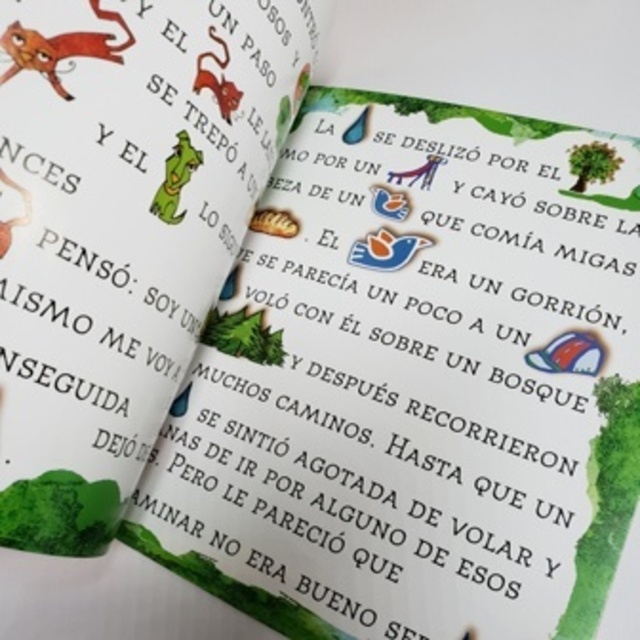 UN PASO
Y EL
SE TREPÓ A
Y EL
PENSÓ: SOY
ME VOY A
DEJÓ
LA SE DESLIZÓ POR EL
POR UN Y CAYÓ SOBRE LA
DE UN QUE COMÍA MIGAS
. EL ERA UN GORRIÓN,
SE PARECÍA UN POCO A UN
VOLÓ CON ÉL SOBRE UN BOSQUE
Y DESPUÉS RECORRIERON
MUCHOS CAMINOS. HASTA QUE UN
SE SINTIÓ AGOTADA DE VOLAR Y
DE IR POR ALGUNO DE ESOS
. PERO LE PARECIÓ QUE
NO ERA BUENO SER